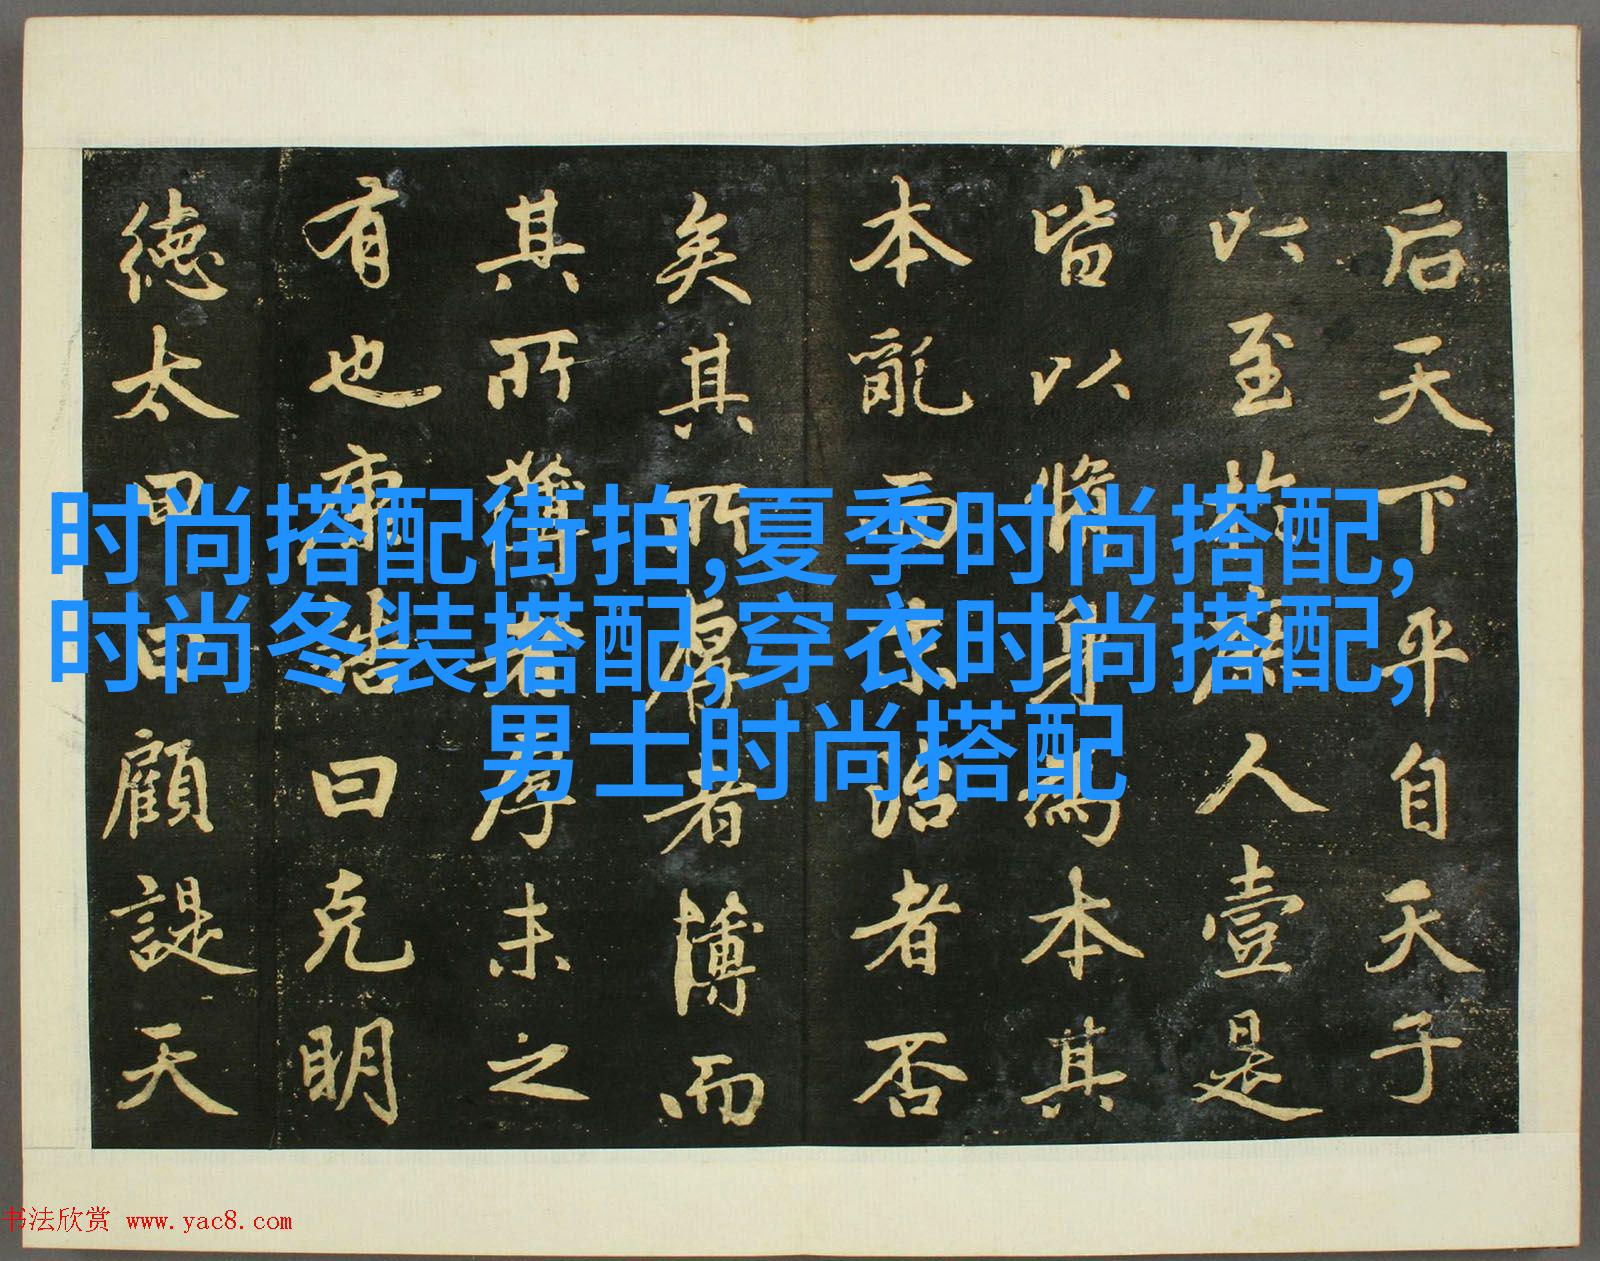 后天下平自天子
以至於庶人壹是
皆以脩身為本其
本亂而末治者否
矣其所厚者薄而
其所薄者厚未之
有也康誥曰克明
德太甲曰顧諟天
时尚搭配街拍,夏季时尚搭配,
时尚冬装搭配,穿衣时尚搭配,
男士时尚搭配
书法欣赏 www.yac8.com